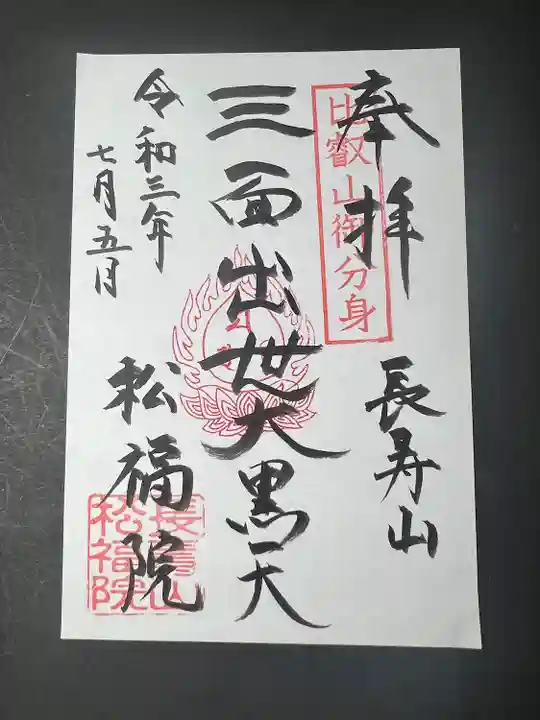 奉拝
比叡山御分身
長寿山
三面出世大黒天
令和三年
七月五日
松福院
長壽山
松福院